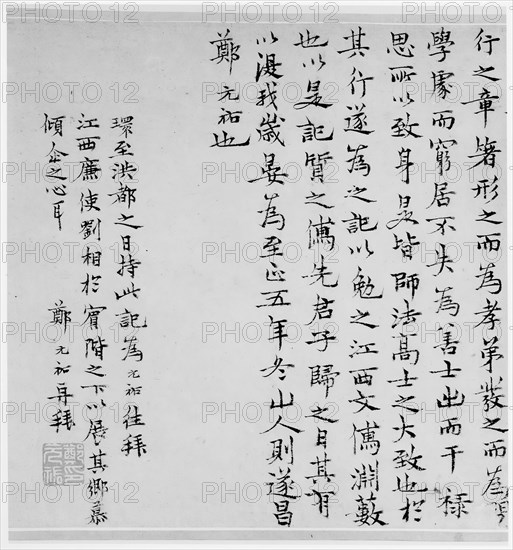 行之章箸形之而為孝弟發之而為
學雖而窮居不失為善士出而干祿
思所以致身是皆師法高士之大致也於
其行遂為之記以勉之江西文儒淵藪
也以是記質之儒先君子歸之日其有
以復我歲晏為至正五年冬出人則遂昌
鄭元祐也
環至洪都之日持此記為元祐往拜
江西廉使劉相於賓階之下以展其鄉慕
傾企之心耳
鄭元祐再拜
PHOTO12